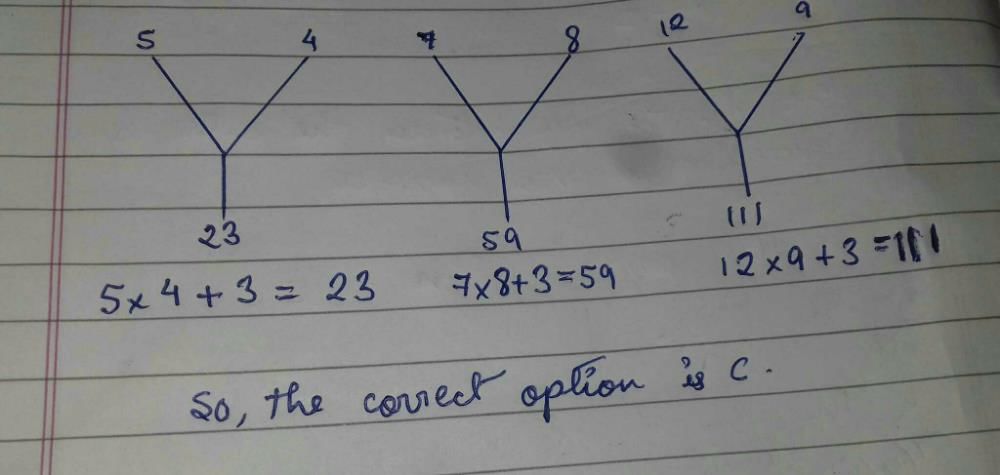 5 4 7 8 12 9
23 59 111
5x4+3 = 23 7x8+3=59 12x9+3=111
So, the correct option is C.